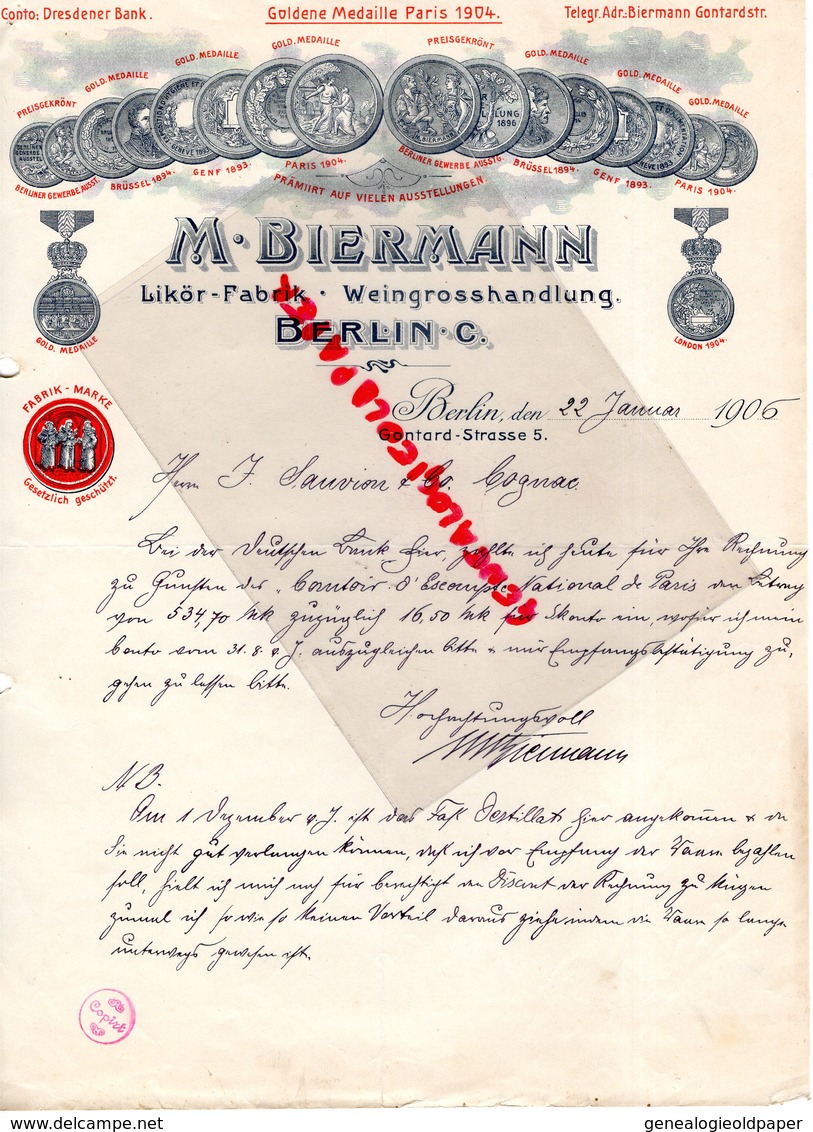 Conto: Dresdener Bank.
Goldene Medaille Paris 1904.
Telegr. Adr.: Biermann Gontardstr.
PREISGEKRÖNT GOLD. MEDAILLE GOLD. MEDAILLE GOLD. MEDAILLE PREISGEKRÖNT GOLD. MEDAILLE GOLD. MEDAILLE GOLD. MEDAILLE
BERLINER GEWERBE AUSST. BRÜSSEL 1894. GENF 1893. PARIS 1904. BERLINER GEWERBE AUSSTG. BRÜSSEL 1894. GENF 1893. PARIS 1904.
PRÄMIIRT AUF VIELEN AUSSTELLUNGEN.
M. BIERMANN
Likör-Fabrik · Weingrosshandlung.
BERLIN·C.
GOLD. MEDAILLE
LONDON 1904.
FABRIK-MARKE
Gesetzlich geschützt.
Berlin, den 22 Januar 1906
Gontard-Strasse 5.
Herrn J. Sauvion & Co. Cognac.
Bei der Deutschen Bank hier, zahlte ich heute für Ihre Rechnung
zu Gunsten des „Comtoir d'Escompte National de Paris den Betrag
von 534,70 Mk zuzüglich 16,50 Mk für Skonto ein, wofür ich mein
Conto vom 31.8. v. J. auszugleichen bitte & mir Empfangsbestätigung zu-
gehen zu lassen bitte.
Hochachtungsvoll
M Biermann
NB.
Am 1 Dezember v. J. ist das Faß Destillat hier angekommen & da
Sie nicht gut verlangen können, daß ich vor Empfang der Waare bezahlen
soll, hielt ich mich noch für berechtigt den Discont der Rechnung zu kürzen
zumal ich so wie so keinen Vorteil daraus ziehe, indem die Waare so lange
unterwegs gewesen ist.
Copirt
genealogieoldpaper